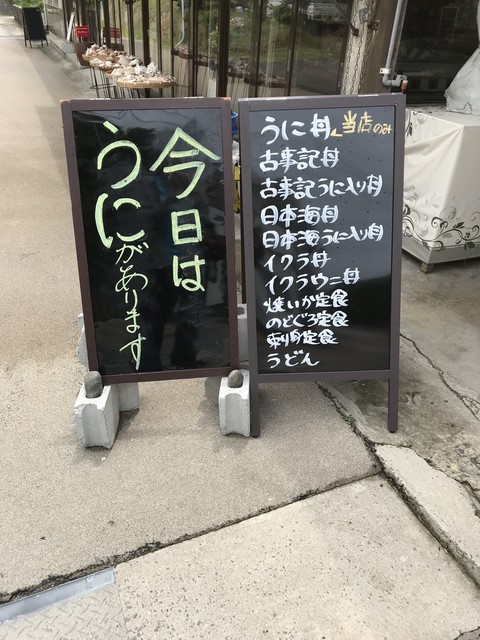 今日は
うにがあります
うに丼 当店のみ
古事記丼
古事記うに入り丼
日本海丼
日本海うに入り丼
イクラ丼
イクラウニ丼
焼いか定食
のどぐろ定食
刺身定食
うどん